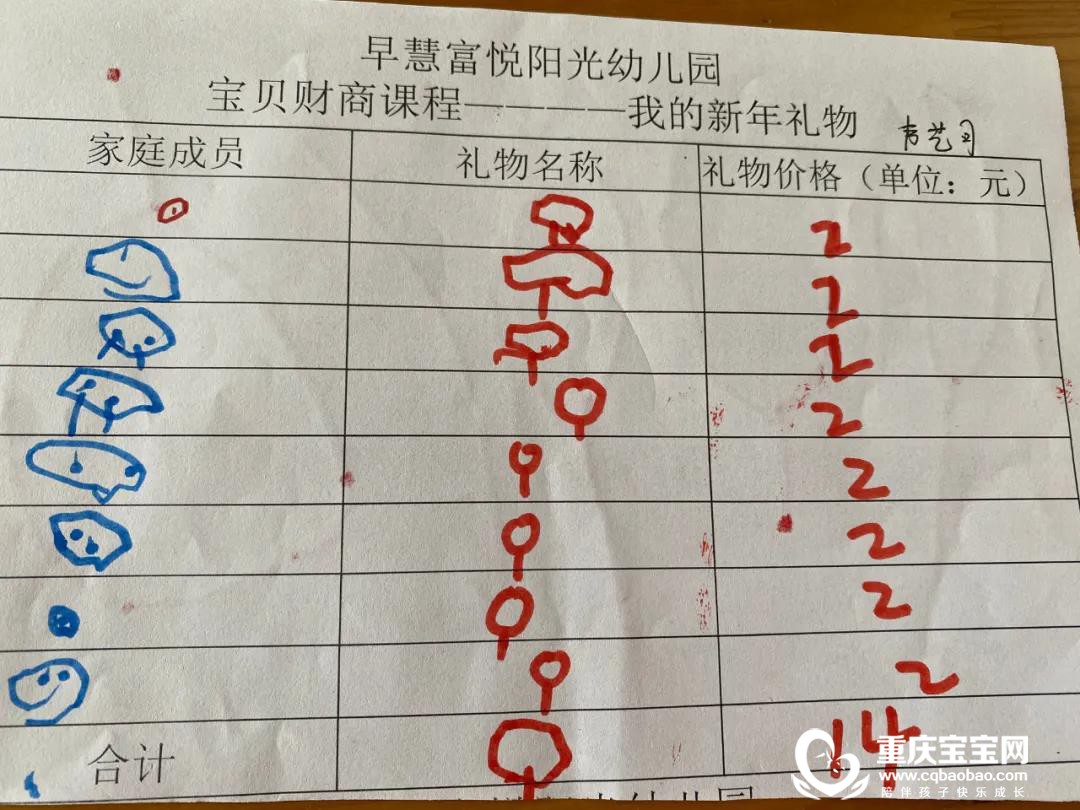 早慧富悦阳光幼儿园
宝贝财商课程————我的新年礼物
家庭成员 礼物名称 礼物价格（单位：元）
2
2
2
2
2
2
2
2
合计 14
重庆宝宝网
www.cqbaobao.com
陪伴孩子快乐成长